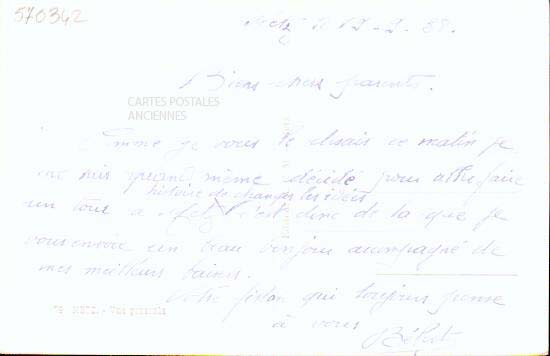 570342
Metz le 12-9-88.
Biens chers parents.
CARTES POSTALES
ANCIENNES
Comme je vous le disais ce matin je
me suis quand même décidé pour aller faire
histoire de changer les idées
un tour à Metz c'est donc de la que je
vous envoie un beau bonjour accompagné de
mes meilleurs baisers.
Votre fiston qui toujours pense
à vous
57 METZ. - Vue générale